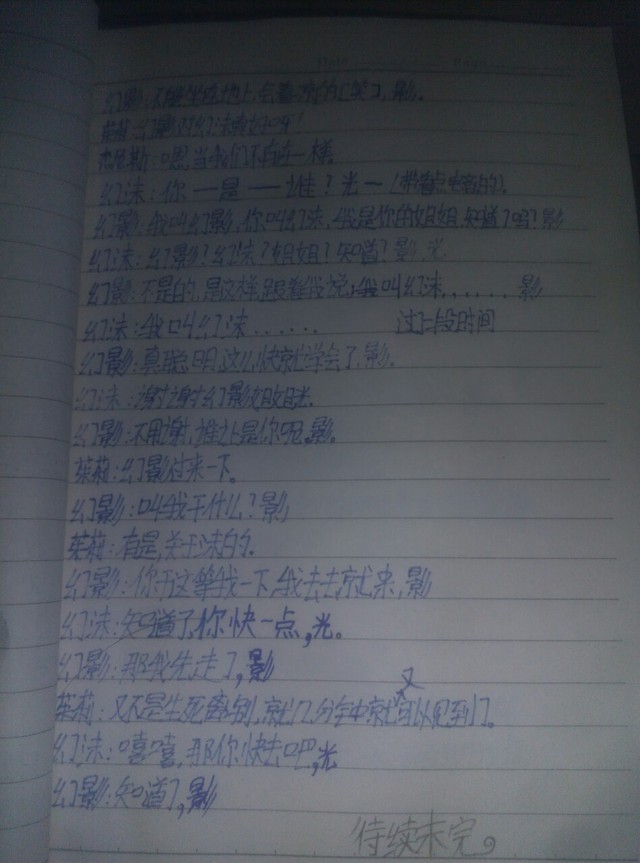 Date Page
幻影:不能坐在地上,会着凉的[笑],影。
茉莉:幻影对幻沫真好呀!
杰斯:嗯,当我们不存在一样。
幻沫:你—是—谁?光—(带着点疑惑的)。
幻影:我叫幻影,你叫幻沫,我是你的姐姐,知道了吗?影
幻沫:幻影?幻沫?姐姐?知道?影,光
幻影:不是的,是这样,跟着我说,我叫幻沫,......,影
幻沫:我叫幻沫....... 过了一段时间
幻影:真聪明,这么快就学会了,影。
幻沫:谢谢幻影姐姐,光.
幻影:不用谢,谁让是你呢,影。
茉莉:幻影过来一下。
幻影:叫我干什么?影
茉莉:有是,关于沫的。
幻影:你在这等我一下,我去去就来,影
幻沫:知道了,你快一点,光。
幻影:那我先走了,影
茉莉:又不是生死离别,就几分钟就又可以见到了。
幻沫:嘻嘻,那你快去吧,光
幻影:知道了,影
待续未完。